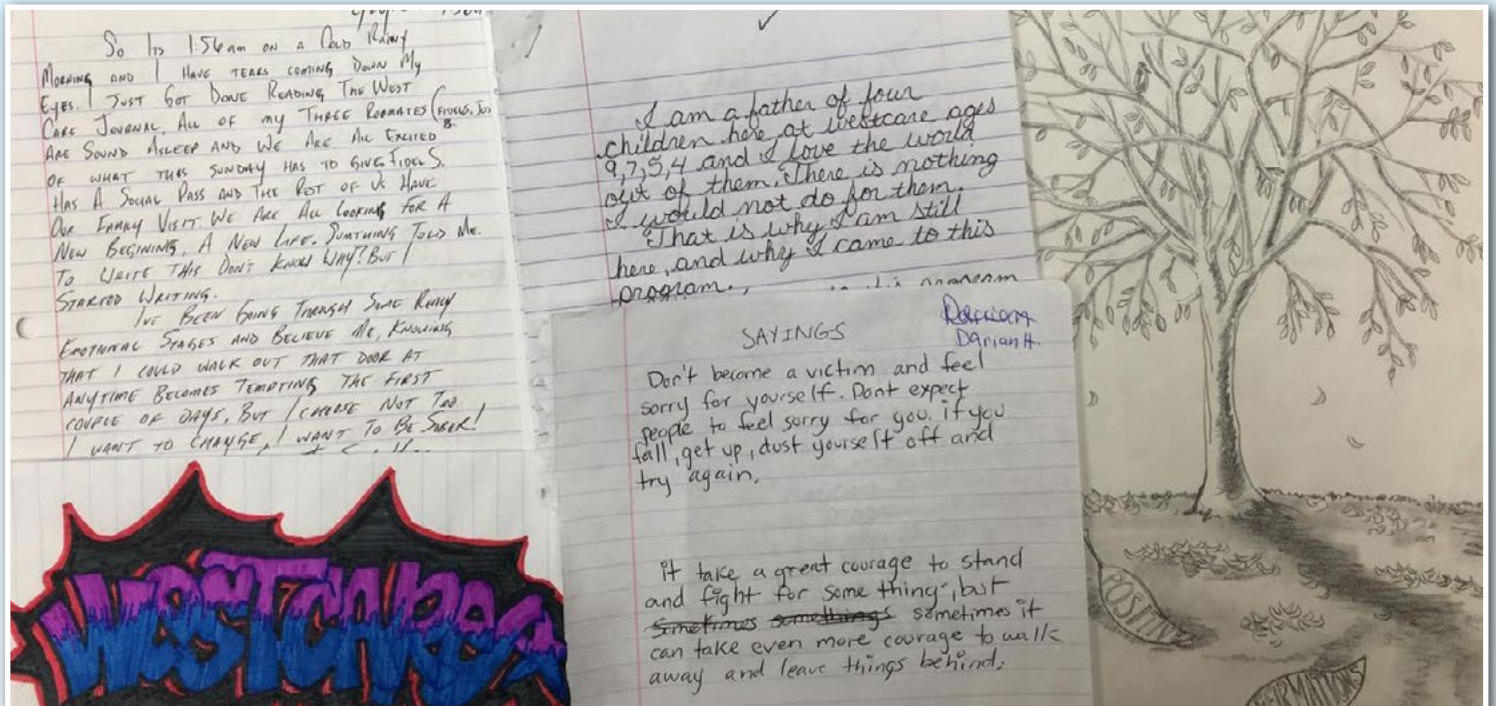 So Its 1:56am on a Cold Rainy
Morning and I Have tears coming Down My
Eyes. I Just Got Done Reading The West
Care Journal, All of my Three Roomates (Fidels,
Are Sound Asleep and We Are All Excited
of what this Sunday Has to Give. Fidel S.
Has A Social Pass and The Rest of Us Have
Our Family Visit. We Are All Looking For A
New Begining, A New Life. Sumthing Told Me
To Write This Don't Know Way? But I
Started Writing.
I've Been Going Through Some Really
Emotional Stages and Believe Me, Knowing
that I could walk out that door at
anytime Becomes Tempting the First
couple of Days, But I choose Not Too
I want to change, I want to Be Sober!
WESTCARE
I am a father of four
children here at westcare ages
9,7,5,4 and I love the world
out of them. There is nothing
I would not do for them.
That is why I am still
here, and why I came to this
program.
SAYINGS
Darian H.
Don't become a victim and feel
sorry for yourself. Dont expect
people to feel sorry for you. if you
fall, get up, dust yourself off and
try again.
it take a great courage to stand
and fight for some thing, but
Simetimes somethings sometimes it
can take even more courage to walk
away and leave things behind.
POSITIV
FIRMATIONS